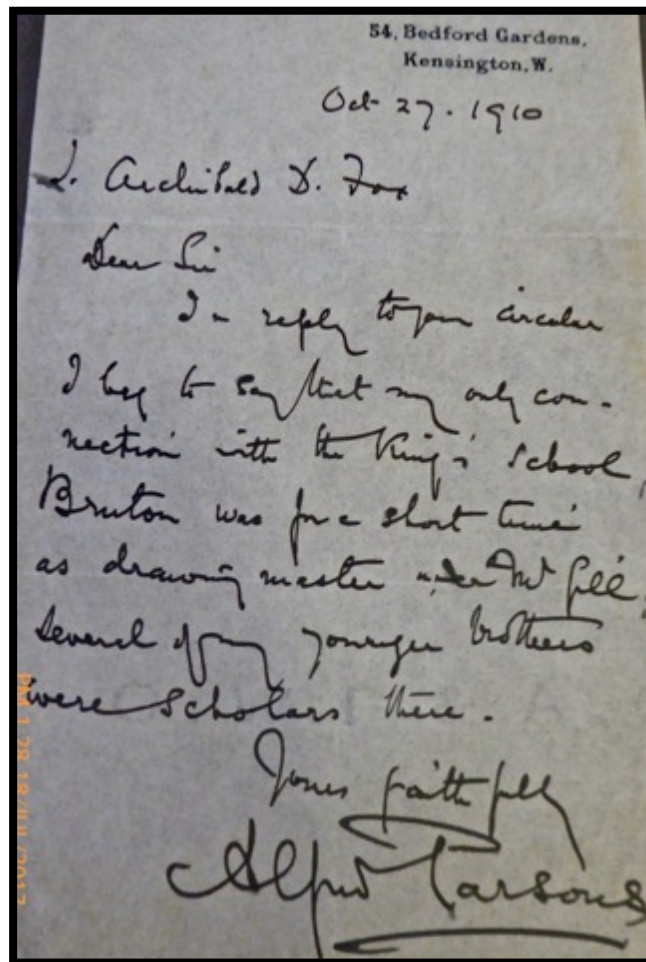 54, Bedford Gardens,
Kensington, W.
Oct 27. 1910
Archibald D. Fox
Dear Sir
In reply to your circular
I beg to say that my only con-
nection with the King's School,
Bruton was for a short time
as drawing master under Mr Gill,
Several of my younger brothers
were scholars there.
Yours faithfully
Alfred Parsons